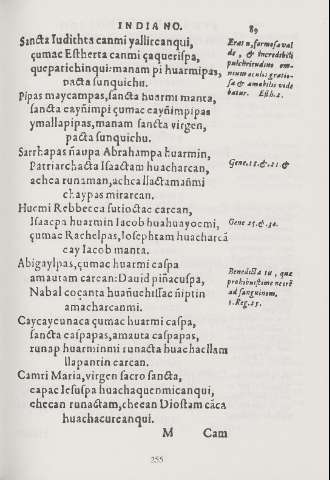 INDIANO. 89
Sancta Iudithta canmi yallircanqui,
çumac Estherta canmi çaquerispa,
queparichinqui: manam pi huarmipas,
pacta sunquichu.
Pipas maycampas, sancta huarmi manta,
sancta cayñimpi çumac cayñimpipas
ymallapipas, manam sancta virgen,
pacta sunquichu.
Sarrhapas ñaupa Abrahampa huarmin,
Patriarchacta Isaactam huacharcan,
achca runaman, achca llactamañmi
chaypas mirarcan.
Huemi Rebbecca sutioctac carcan,
Isaacpa huarmin Iacob huahuayocmi,
çumac Rachelpas, Iosephtam huacharcã
cay Iacob manta.
Abigaylpas, çumac huarmi caspa
amautam carcan: Dauid piñacuspa,
Nabal coçanta huañuchissac ñiptin
amacharcanmi.
Caycaycunaca çumac huarmi caspa,
sancta caspapas, amauta caspapas,
runap huarminmi runacta huachacllam
llapantin carcan.
Camri Maria, virgen sacro sancta,
capac Iesuspa huachaquenmicanqui,
checan runactam, checan Diostam cãca
huachacurcanqui.
M Cam
Erat n, formosa val
de, & incredibili
pulchritudine om-
nium oculis gratio-
sa & amabilis vide
batur. Esth. 2.
Gene. 18. &. 21. &
Gene 25. &. 30.
Benedicta tu, que
prohibuisti me ne irē
ad sanguinem.
1. Reg. 25.
255